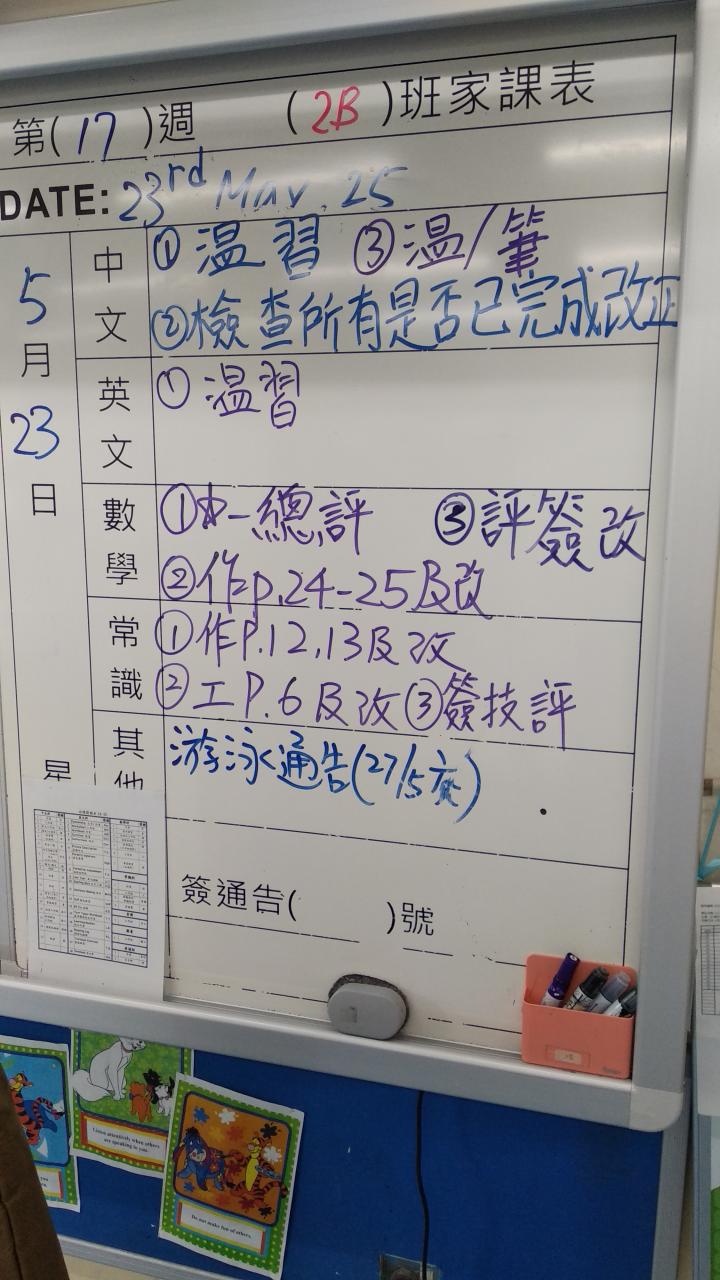 第(17)週 (2B)班家課表
DATE: 23rd May. 25
5月23日 星
中文
①温習 ③温/筆
②檢查所有是否已完成改正
英文
①温習
數學
①中一總評 ③評簽改
②作p.24-25及改
常識
①作P.12,13及改
②工P.6及改③簽技評
其他
游泳通告(27/5交)
簽通告( )號
Listen attentively when others
are speaking to you.
Do not make fun of others.